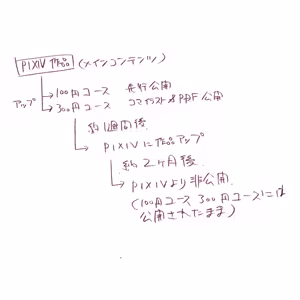 PIXIV作品 (メインコンテンツ)
アップ
→100円コース 先行公開
→300円コース コマイラスト&PDF公開
約1週間後
→PIXIVに作品アップ
約2ヶ月後
→PIXIVより非公開
(100円コース 300円コースには
公開されたまま)